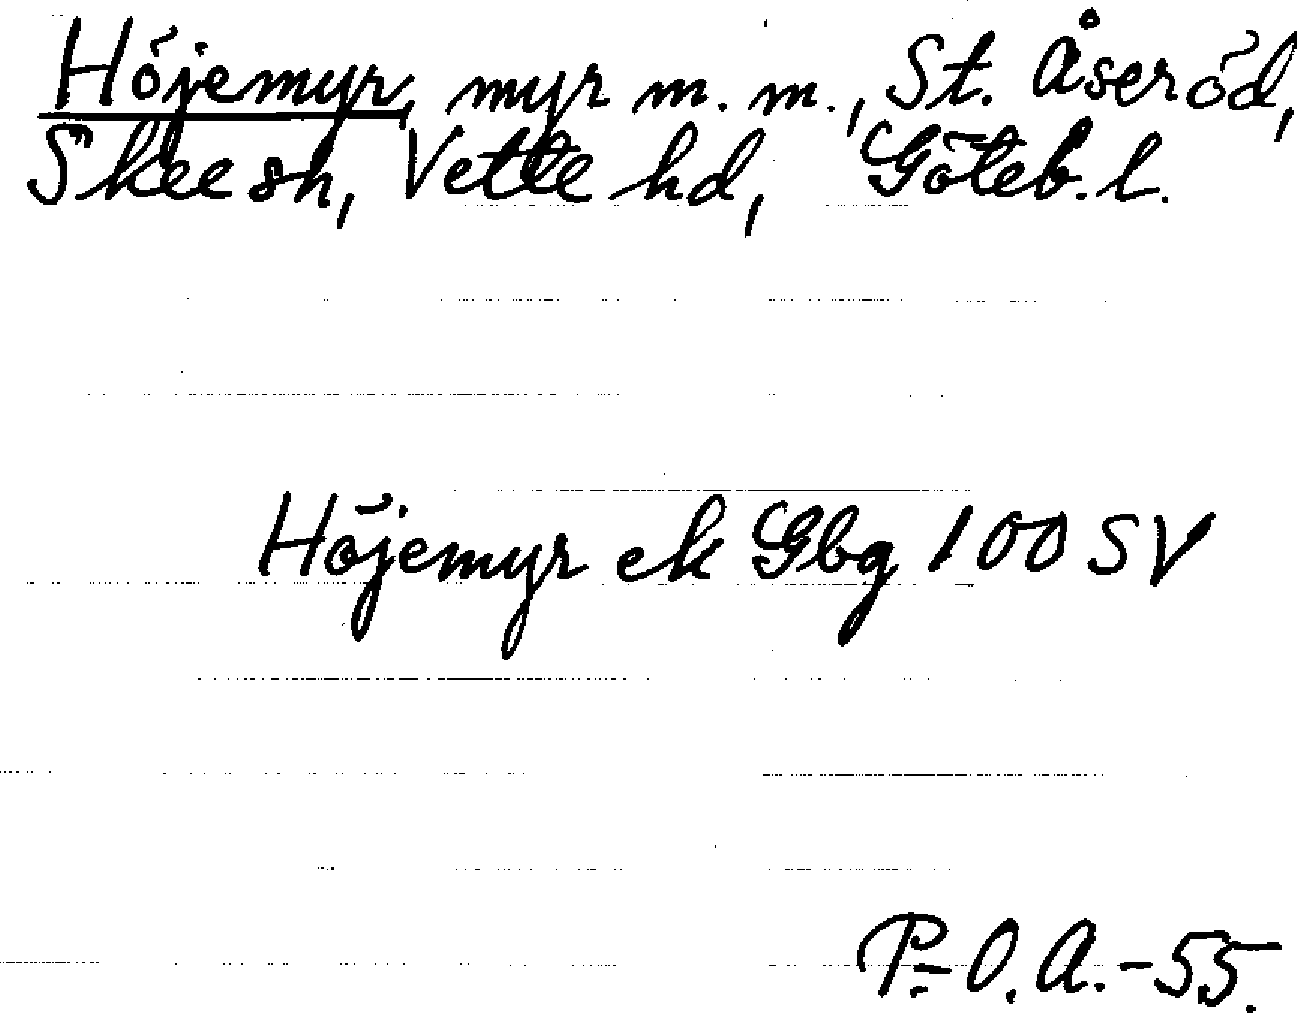 Höjemyr, myr m. m., St. Åseröd,
Skee sn, Vette hd, Göteb. l.
Höjemyr ek Gbg 100 SV
P.-O. A. -55.